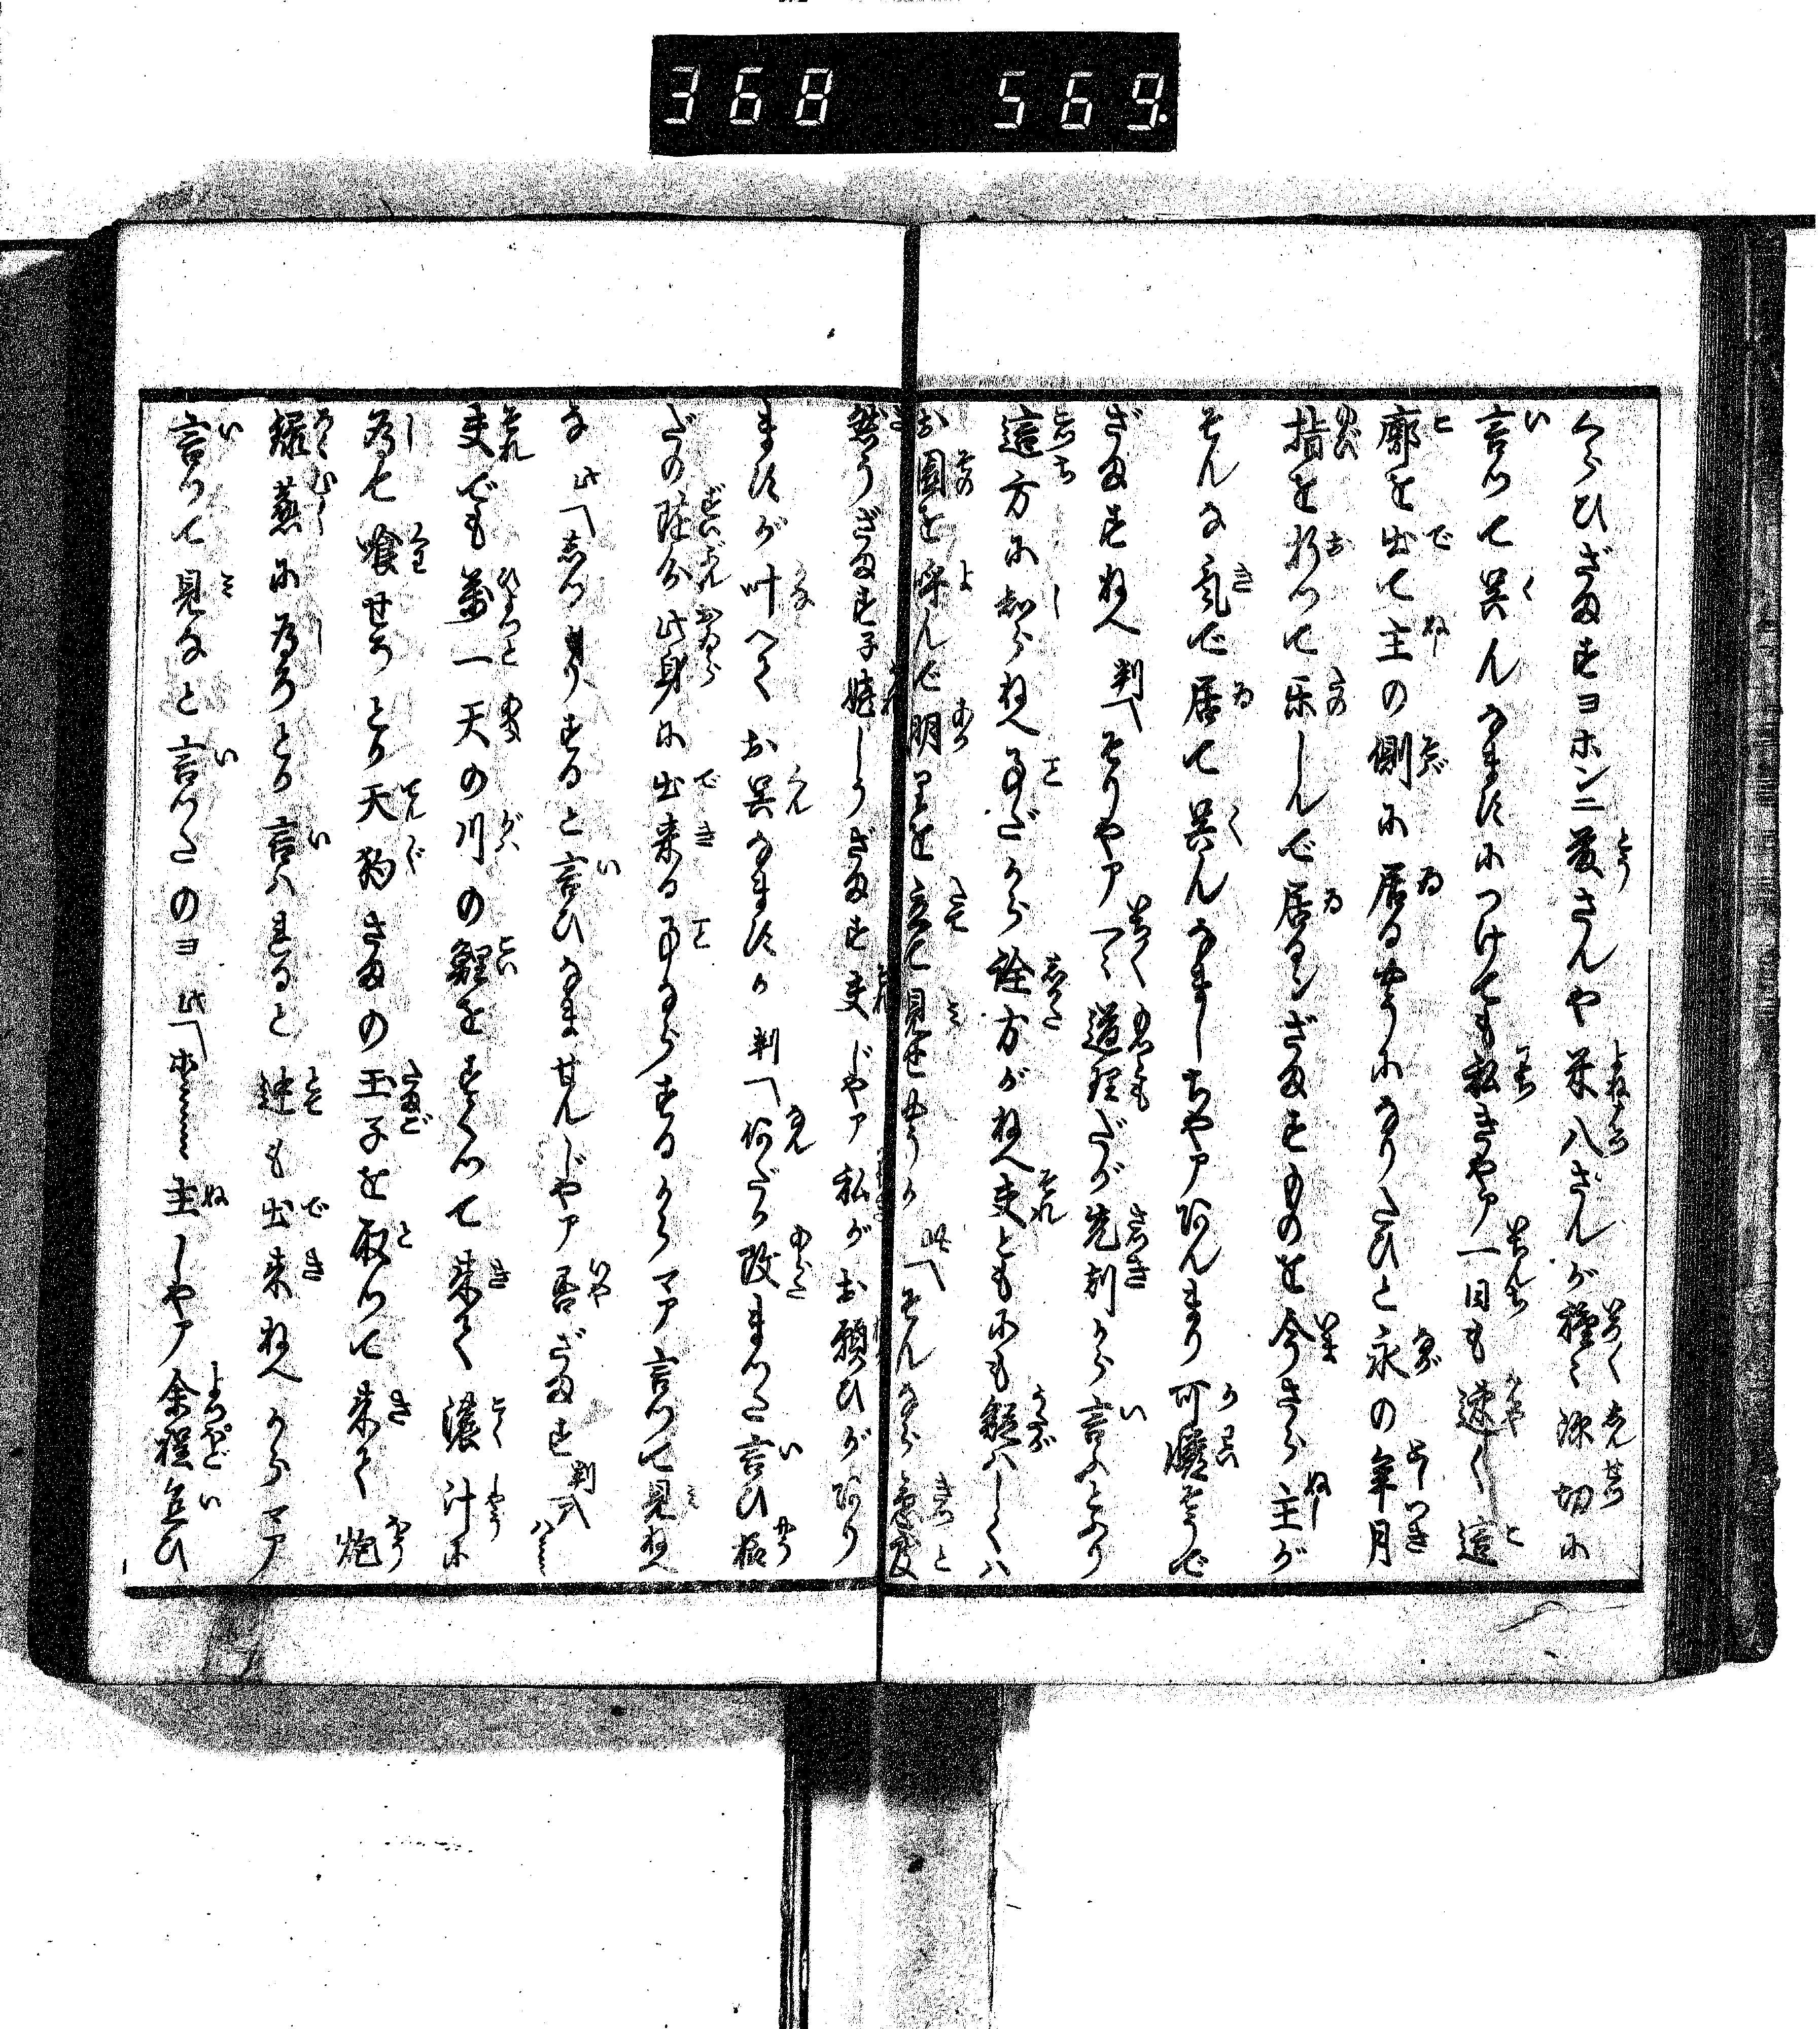 368 569.
くらひざますヨホンニ藤さんや米八さんが種々深切に
言つて呉んなますにつけても私きやア一日も速く這
廓を出て主の側に居るやうになりたひと永の年月
指を折つて楽しんで居るンざますものを今さら主が
そんな気で居て呉んなましちやアあんまり可愛さうで
ざますねへ 判「そりやアマア道理だが先刻から言ふとふり
這方に知らねへ事だから詮方がねへ夫とも疑はしくハ
お園を呼んで明りを立て見せやうか 此「そんなら急度
然うざます子嬉しうざます夫じやア私がお願ひがあり
ますが叶へてお呉なますか 判「何だか改まつた言ひ様
だの随分此身に出来る事ならするからマア言つて見ねへ
な 此「きつとすると言ひなませんじやア否ざます 判「ハヽヽヽ
夫でも万一天の川の鯉をすくつて来て濃汁に
為て喰せろとか天狗さまの玉子を取つて来て炮
烙蒸に為ろとか言ハれると迚も出来ねへからマア
言つて見なと言つたのヨ 此「ホヽヽヽヽ主しやア余程負ひ